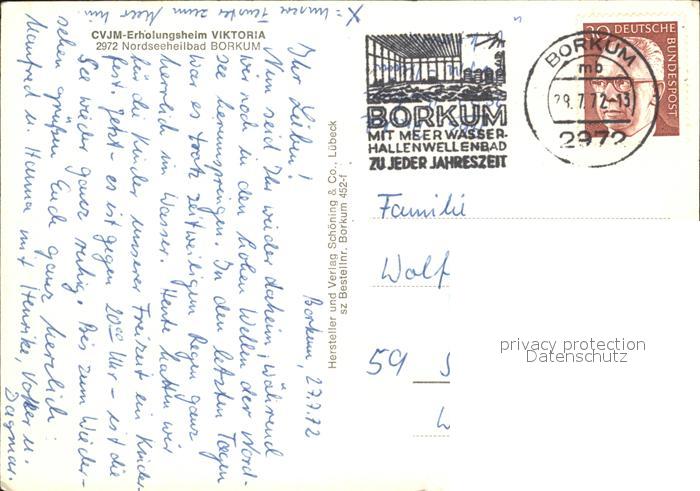 X = unsere Fenster zum Meer hin
CVJM-Erholungsheim VIKTORIA
2972 Nordseeheilbad BORKUM
Borkum, 27.7.72
Ihr Lieben!
Nun seid Ihr wieder daheim, während
wir noch in den hohen Wellen der Nord-
see herumspringen. In den letzten Tagen
war es trotz zeitweiligen Regen ganz
herrlich im Wasser. Heute hatten wir
für die Kinder unserer Freizeit ein Kinder-
fest. Jetzt - es ist gegen 20 00 Uhr - ist die
See wieder ganz ruhig. Bis zum Wieder-
sehen grüßen Euch ganz herzlich
Manfred u. Hanna mit Henrike, Volker u.
Dagmar.
Hersteller und Verlag Schöning & Co., Lübeck
sz Bestellnr. Borkum 452-f
BORKUM
MIT MEERWASSER-
HALLENWELLENBAD
ZU JEDER JAHRESZEIT
BORKUM
mb
28.7.72-13
2972
30 DEUTSCHE
BUNDESPOST
Familie
Wolf
59 S
privacy protection
Datenschutz